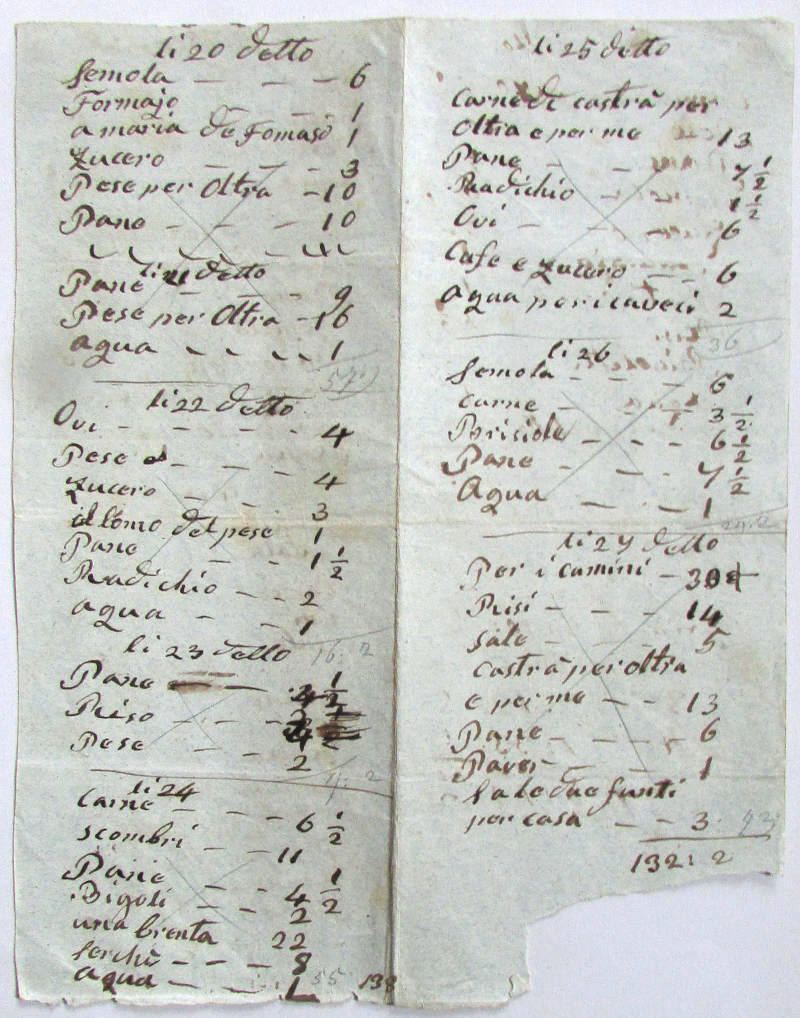 li 20 detto
Semola - - - 6
Formajo - - 1
a maria de Tomaso 1
Zucero - - - 3
Pese per Oltra - 10
Pane - - - 10
li 21 detto
Pane - - - 9
Pese per Oltra - 16
agua - - - - 1
57
li 22 detto
Ovi - - - - 4
Pese - - - 4
Zucero - - 3
il lomo del pese 1
Pane - - - 1 1/2
Radichio - - 2
agua - - 1
16: 2
li 23 detto
Pane
Riso
Pese - - 2
li 24
Carne - - - 6 1/2
scombri - - 11
Pane - - 4 1/2
Bigoli - - 2
una brenta 22
Serchi - - - 8
agua - - - 1
55
138
li 25 detto
Carne di castrà per
Oltra e per me 13
Pane - - - 7 1/2
Radichio - - 1 1/2
Ovi - - - 6
Cafe e Zucero - - 6
agua per i caveci 2
36
li 26
Semola - - - 6
Carne - - - 3 1/2
Brisiole - - - 6 1/2
Pane - - - 7 1/2
Agua - - - 1
li 27 detto
Per i camini - 30
Risi - - - 14
sale - - - 5
castrà per oltra
e per me - - 13
Pane - - - 6
Paver - - - 1
Sale due funti
per casa - - 3
132: 2